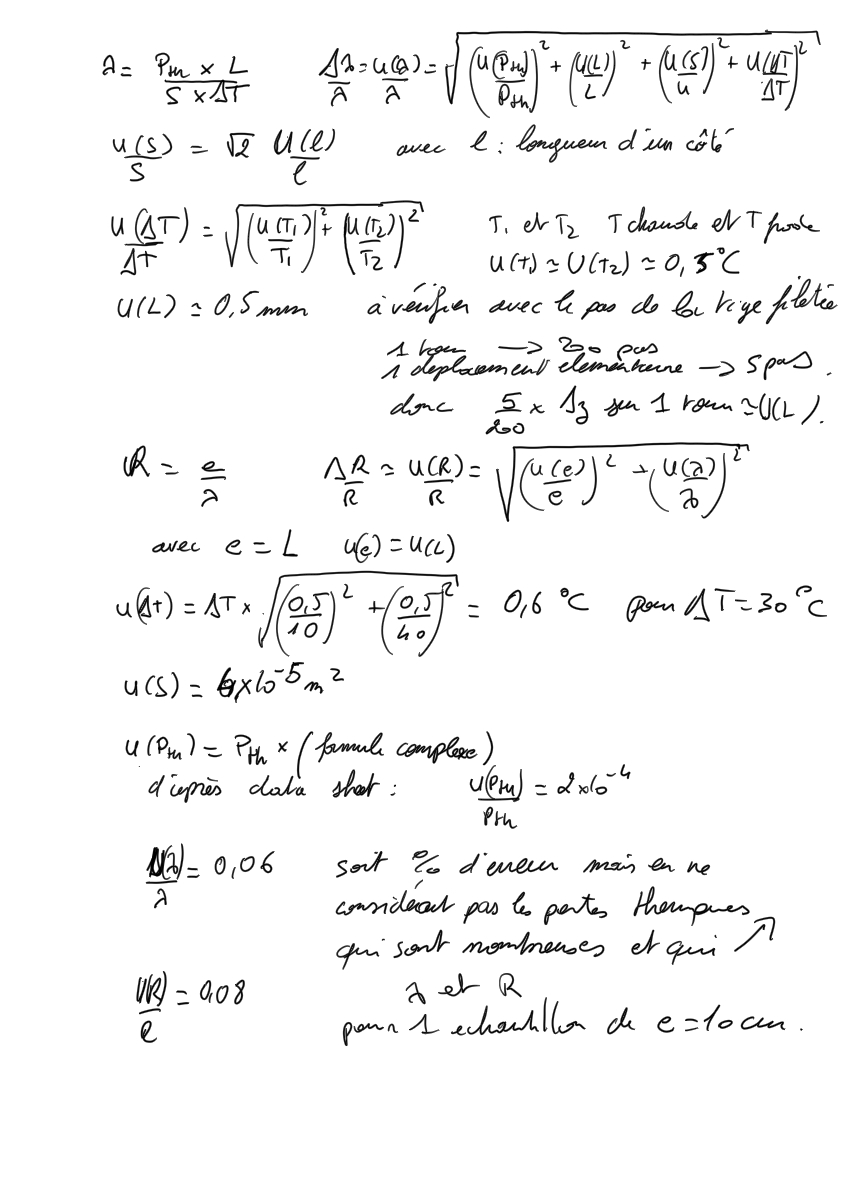 λ = (P_th × L)/(S × ΔT)   Δλ/λ = u(λ)/λ = √((u(P_th)/P_th)² + (u(L)/L)² + (u(S)/u)² + (u(ΔT)/ΔT)²)
u(S)/S = √2 U(l)/l   avec l : longueur d'un côté
u(ΔT)/Δt = √((u(T₁)/T₁)² + (u(T₂)/T₂)²)   T₁ et T₂ T chaude et T froide
u(t₁) ≃ U(T₂) ≃ 0,5°C
u(L) ≃ 0,5 mm   à vérifier avec le pas de la tige filetée
1 tour → 200 pas
1 déplacement élémentaire → 5 pas.
donc 5/200 × Δz sur 1 tour ≃ U(L).
R = e/λ   ΔR/R ≃ u(R)/R = √((u(e)/e)² + (u(λ)/λ)²)
avec e = L   u(e) = u(L)
u(Δt) = ΔT × √((0,5/10)² + (0,5/40)²) = 0,6 °C   pour ΔT = 30°C
u(S) = 6×10⁻⁵ m²
u(P_th) = P_th × (formule complexe)
d'après data sheet :   u(P_th)/P_th = 2×10⁻⁴
u(λ)/λ = 0,06   soit % d'erreur mais en ne
considérant pas les pertes thermiques
qui sont nombreuses et qui ↗
U(R)/R = 0,08   λ et R
pour 1 echantillon de e = 10 cm.